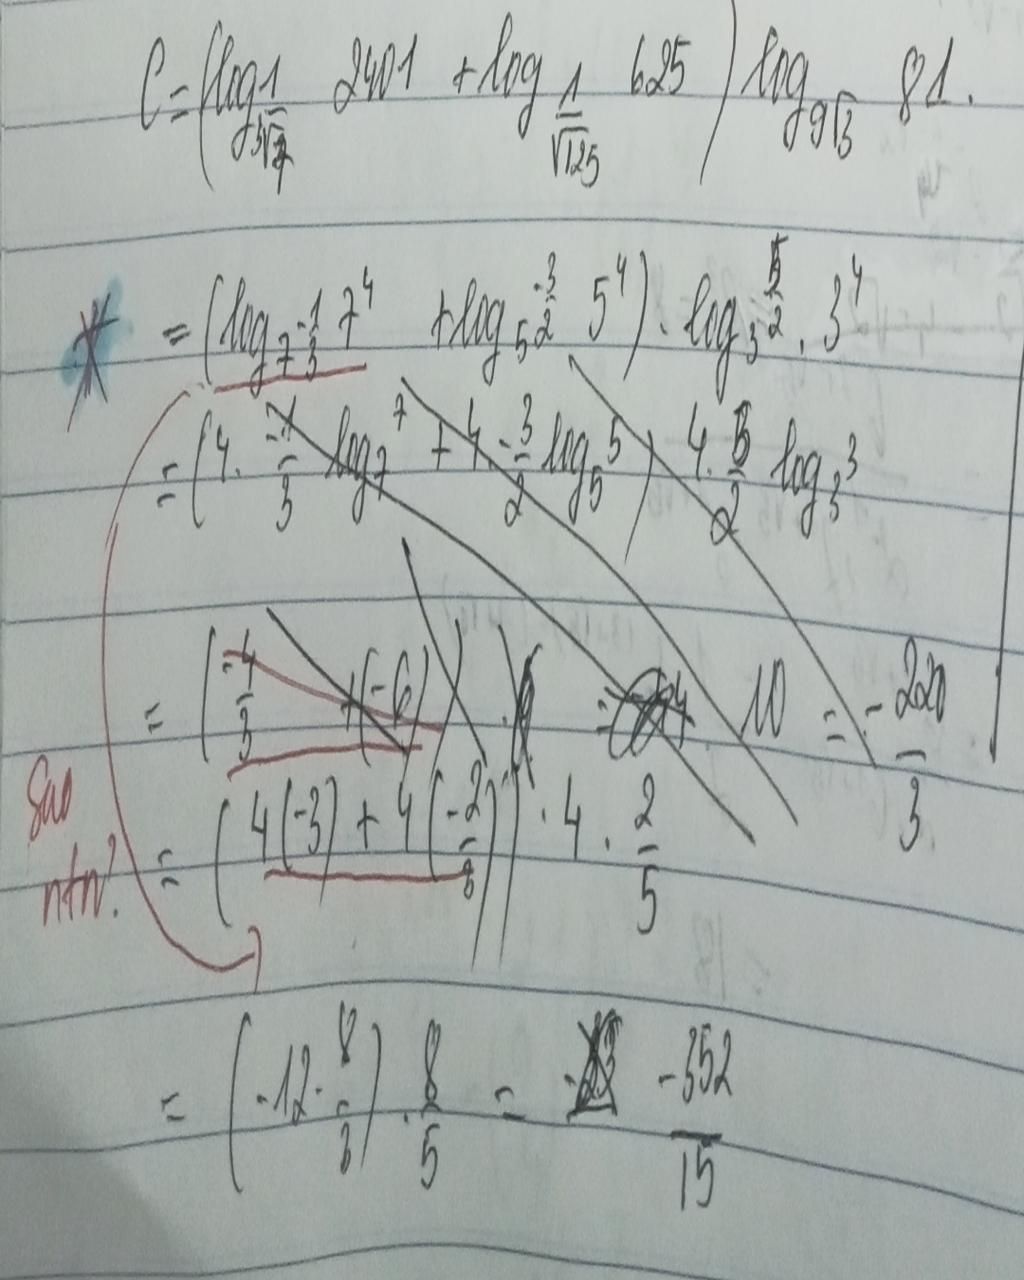 C = (log_{1/∛7} 2401 + log_{1/√125} 625) log_{9√3} 81.
= (log_{7^{-1/3}} 7^4 + log_{5^{-3/2}} 5^4) . log_{3^{5/2}} . 3^4
= (4. -1/3 log_7 7 + 4. -3/2 log_5 5) 4. 5/2 log_3 3
= (-4/3 + (-6)) . 10 = - 220/3
Sao ntn?
= (4(-3) + 4(-2/3)) . 4 . 2/5
= (-12 - 8/3) . 8/5 = -352/15